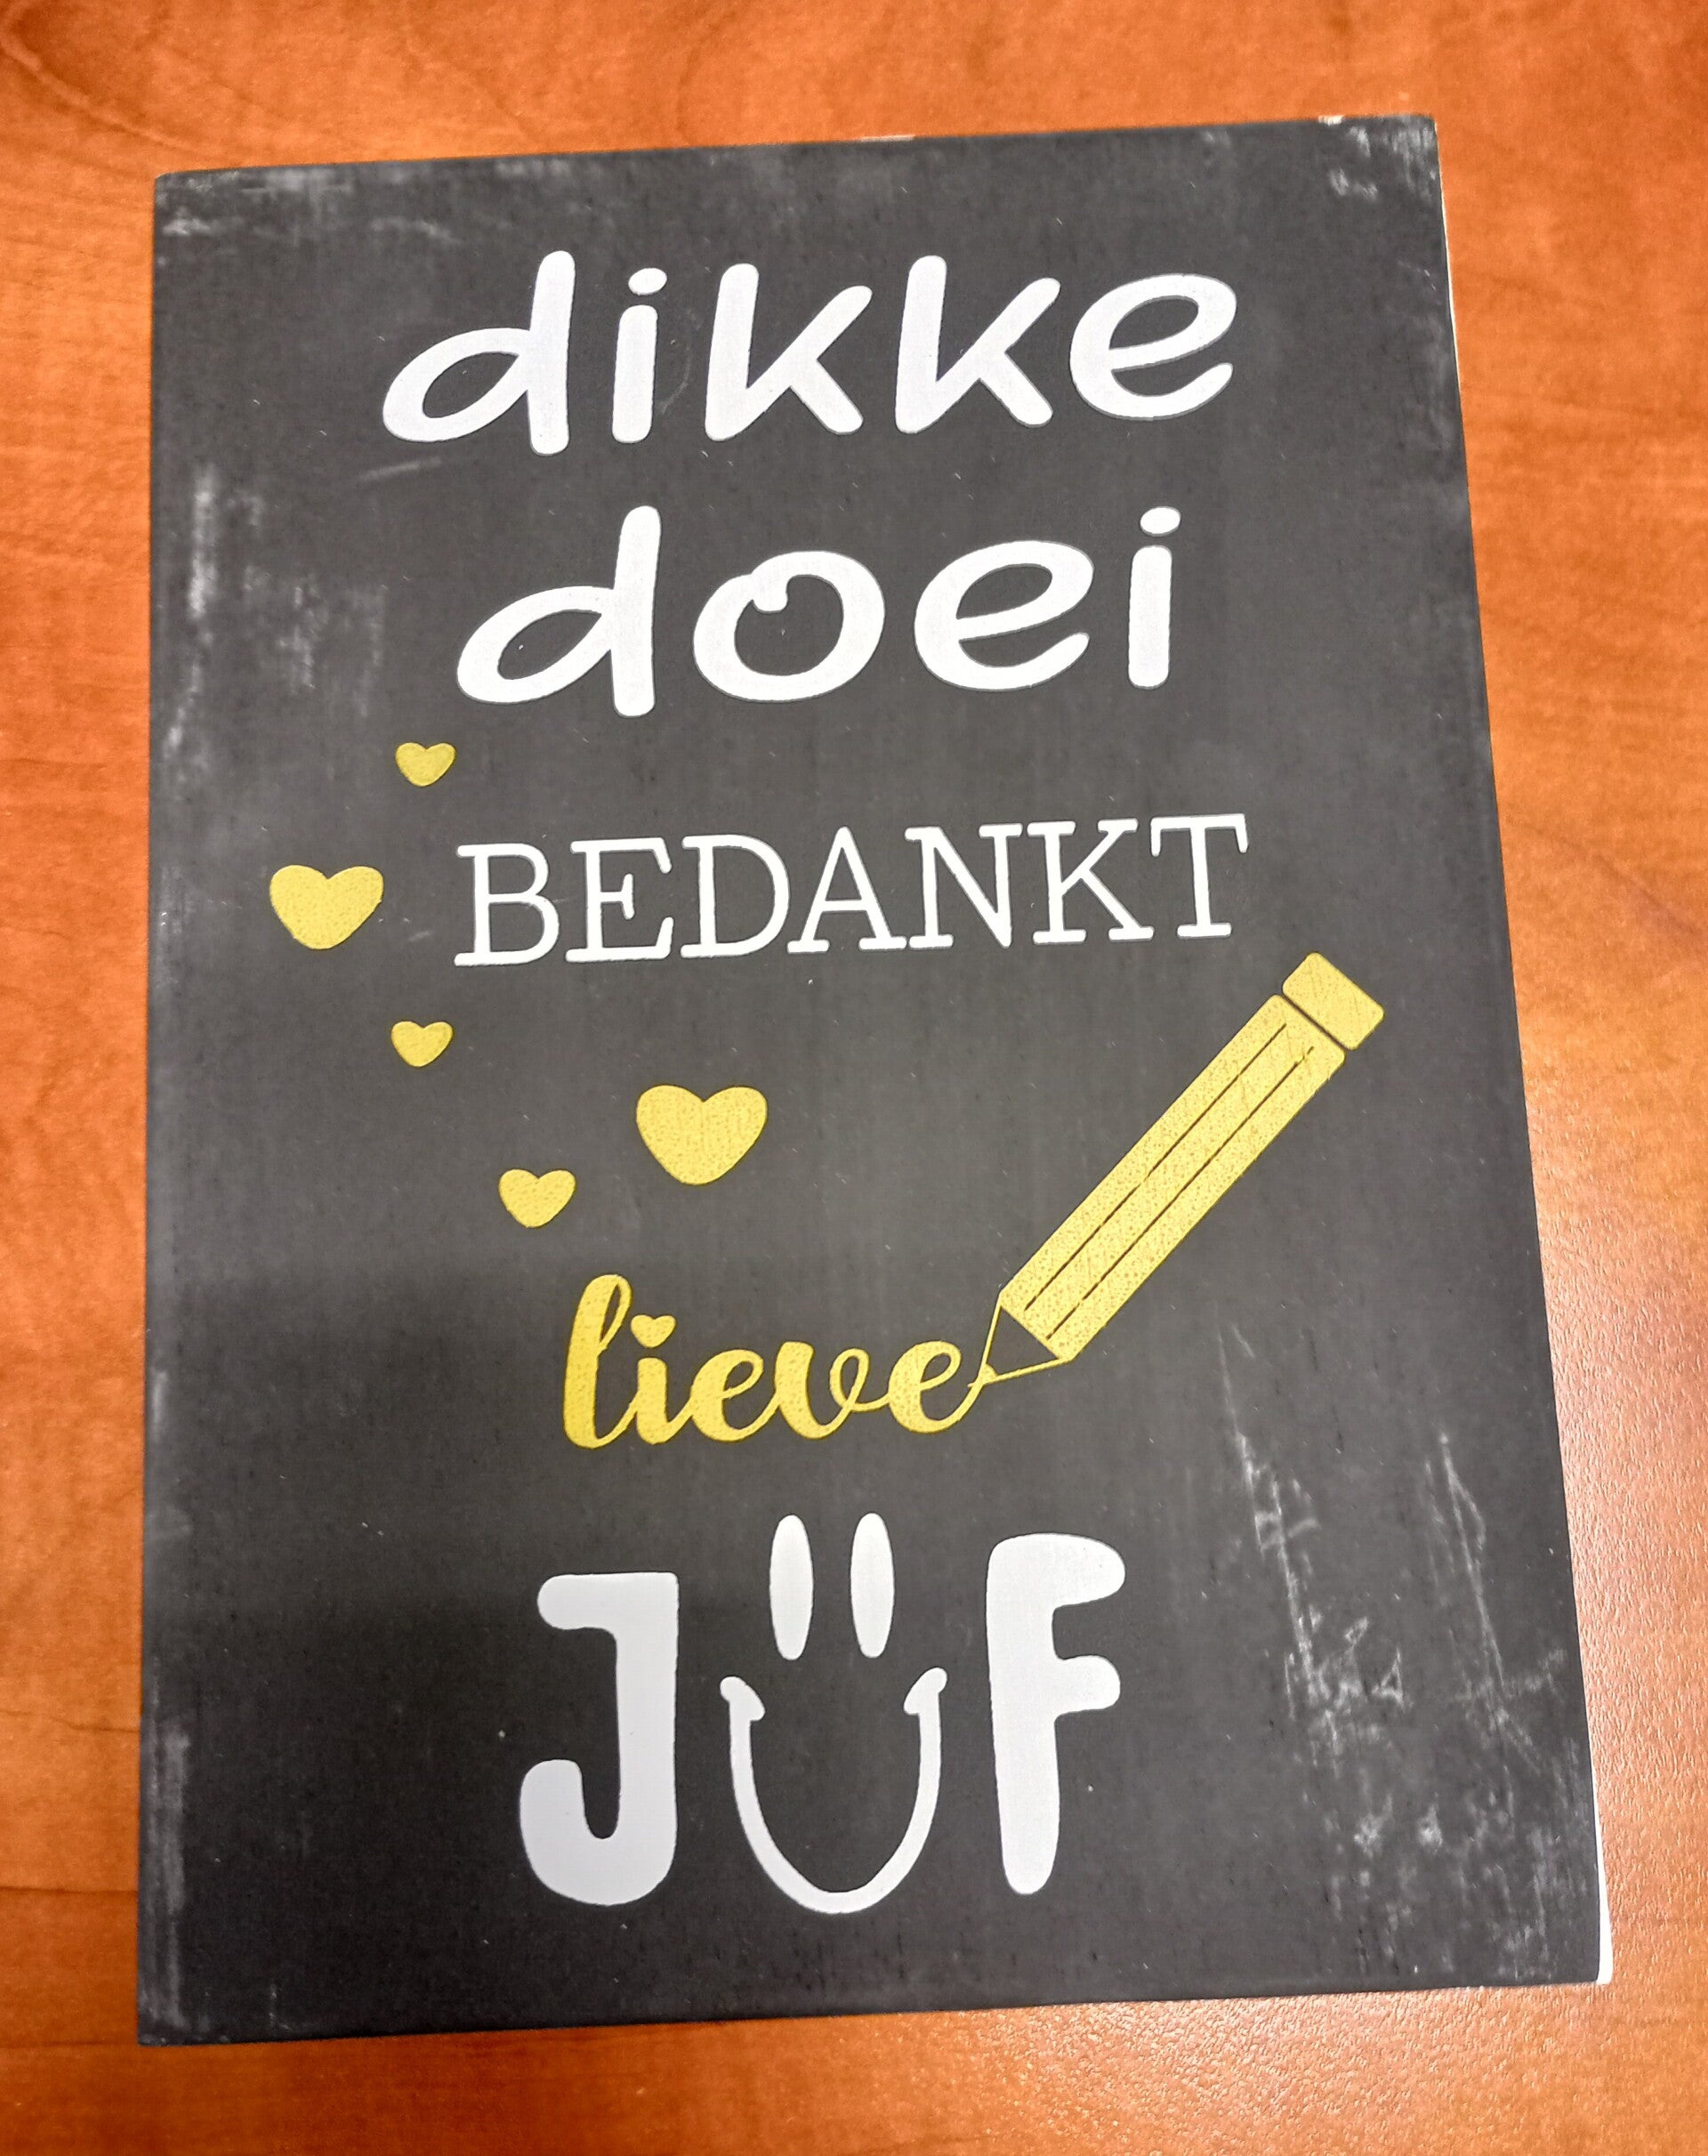 dikke
doei
BEDANKT
lieve
JÜF